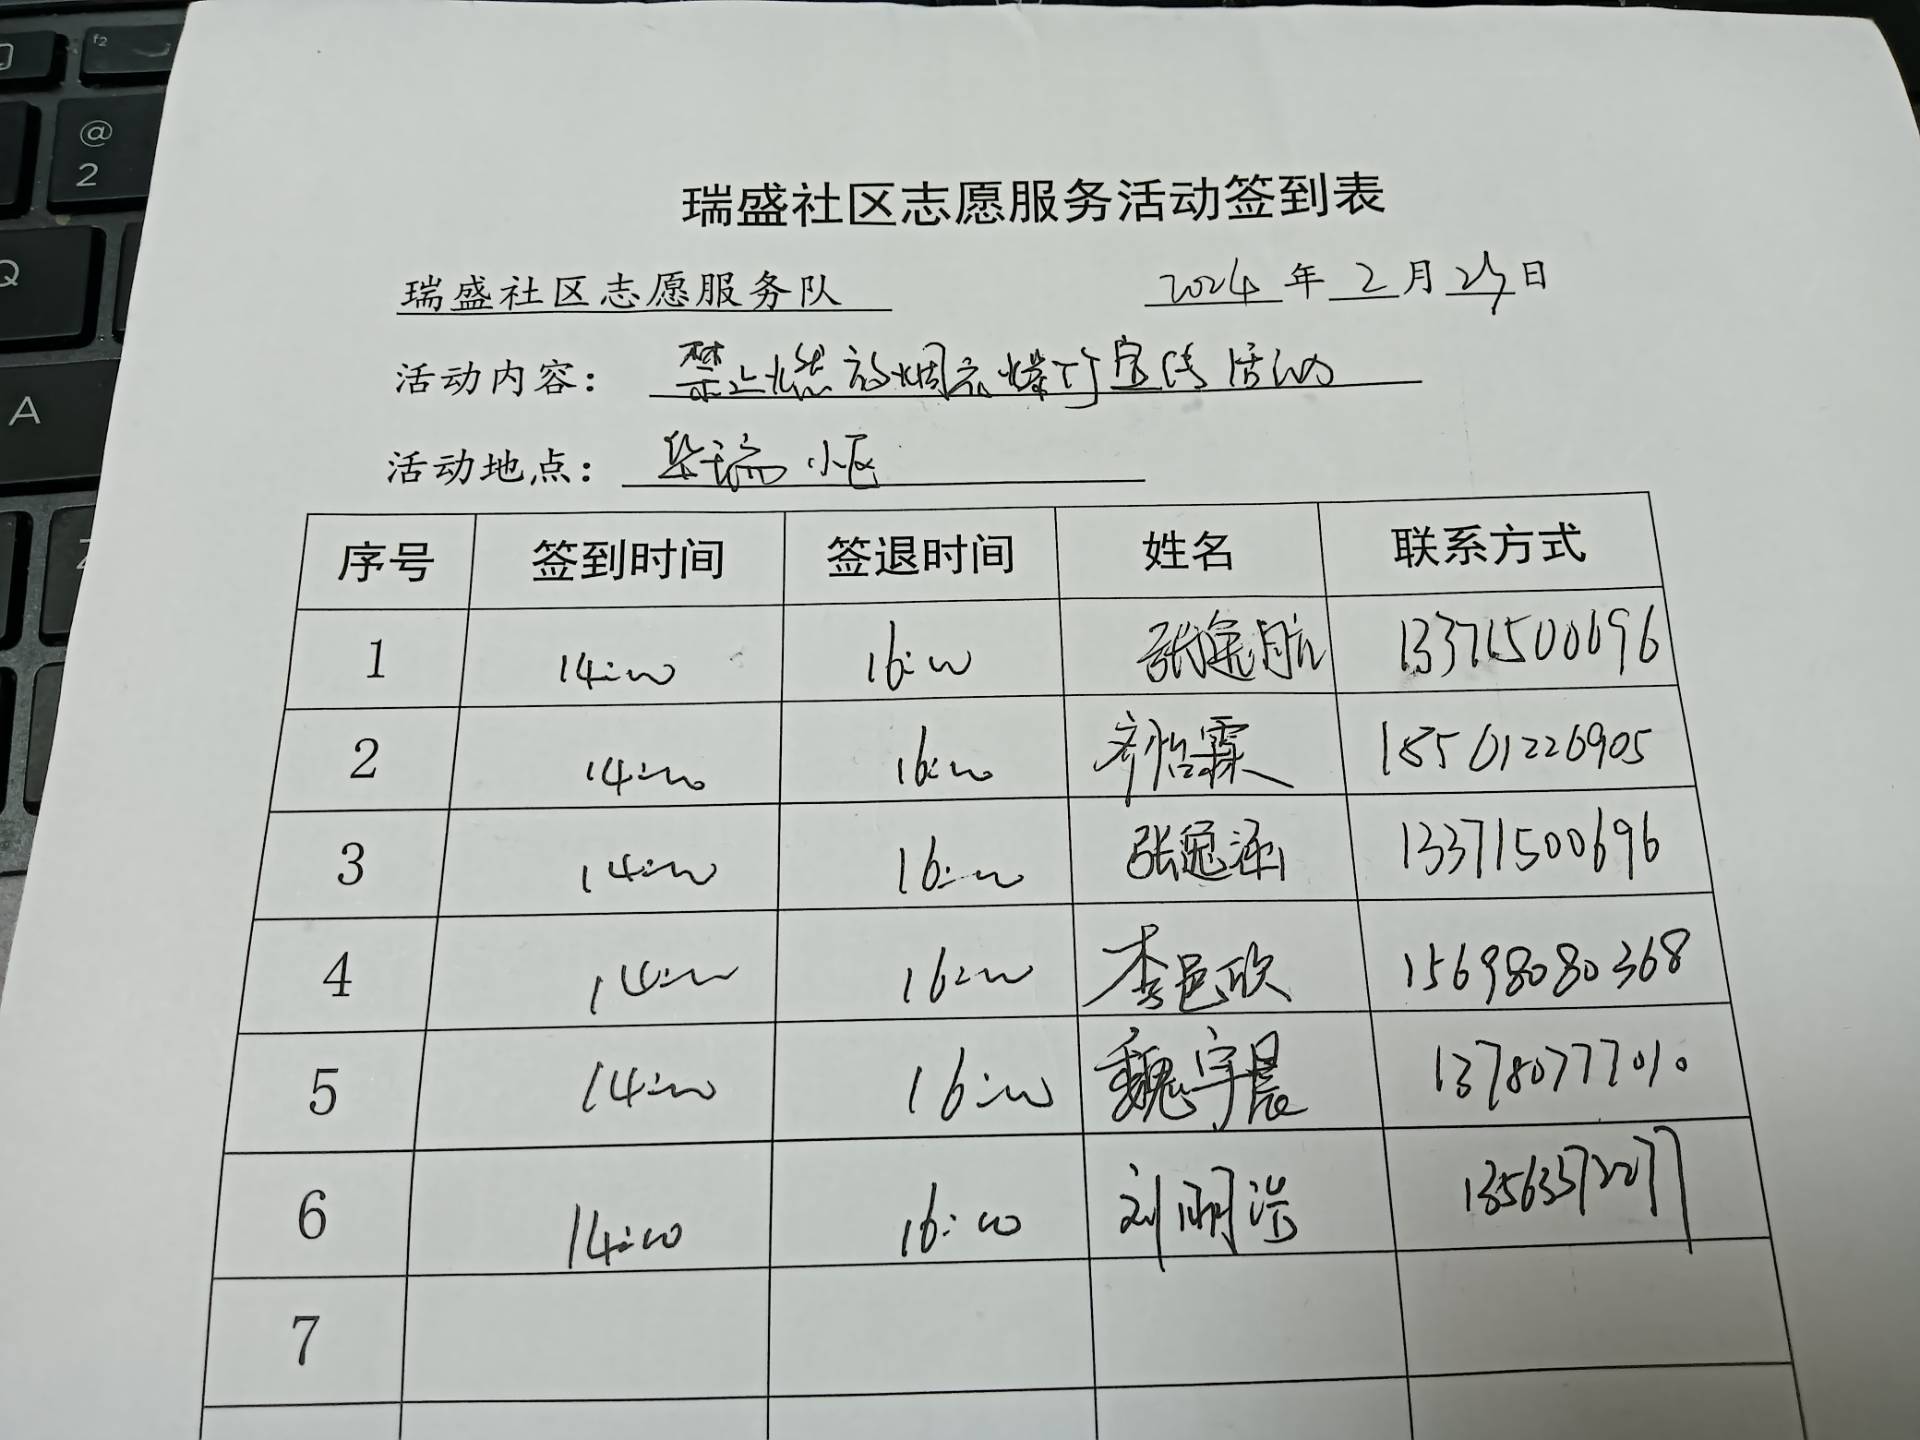 瑞盛社区志愿服务活动签到表
瑞盛社区志愿服务队 2024 年 2 月 日
活动内容： 禁止燃放烟花爆竹宣传活动
活动地点： 华瑞小区
序号 签到时间 签退时间 姓名 联系方式
1 14:00 16:00 张逸航 13371500696
2 14:00 16:00 齐怡霖 18561226905
3 14:00 16:00 张逸涵 13371500696
4 14:00 16:00 李邑欣 15698080368
5 14:00 16:00 魏宇晨 13780777010
6 14:00 16:00 刘明浩 13563572277
7
@
2
Q
A
Z
f2